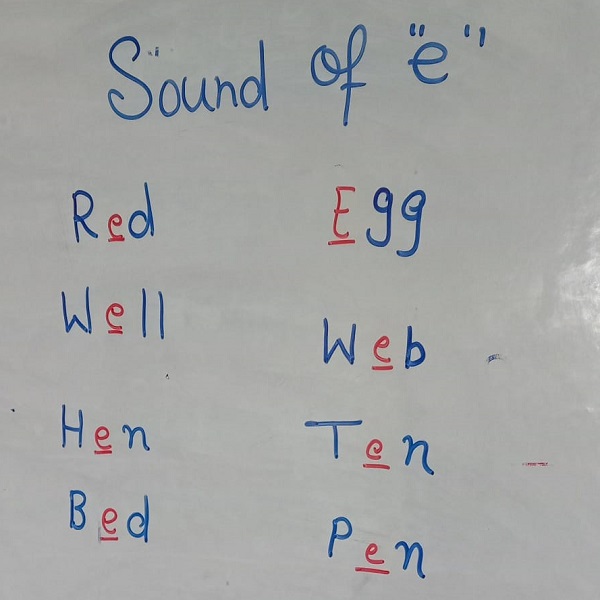 Sound of "e"
Red Egg
Well Web
Hen Ten
Bed Pen